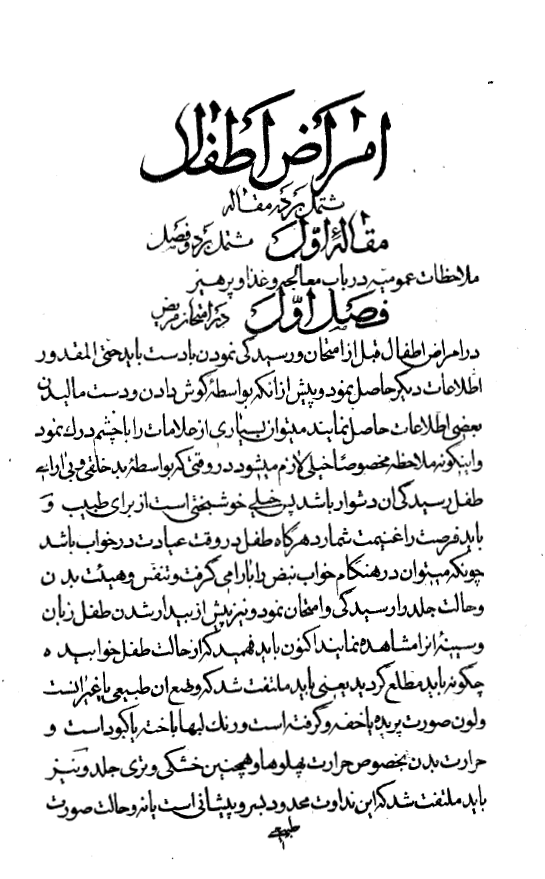 امراض اطفال
مشتمل بر ده مقاله
مقالهٔ اوّل مشتمل بر دو فصل
ملاحظات عمومیه در باب معالجه و غذا و پرهیز
فصل اوّل در امتحان مریض
در امراض اطفال قبل از امتحان و رسیدگی نمودن با دست باید حتی المقدور
اطلاعات دیگر حاصل نمود و پیش از آنکه بواسطهٔ گوش دادن و دست مالیدن
بعضی اطلاعات حاصل نمایند میتوان بسیاری از علامات را با چشم درك نمود
و اینگونه ملاحظه مخصوصاً خیلی لازم میشود در وقتی که بواسطهٔ بدخلقی و بی ارامی
طفل رسیدگی ان دشوار باشد پس خیلی خوشبختی است از برای طبیب و
باید فرصت را غنیمت شمارد هرگاه طفل در وقت عیادت در خواب باشد
چونکه میتوان در هنگام خواب نبض را بارامی گرفت و تنفس و هیئت بدن
و حالت جلد را رسیدگی و امتحان نمود و نیز پیش از بیدار شدن طفل زبان
و سینهٔ انرا مشاهده نمایند اکنون باید فهمید که از حالت طفل خوابیده
چگونه باید مطلع گردید یعنی باید ملتفت شد که وضع ان طبیعی یا غیر انست
و لون صورت پریده یا خفه و گرفته است و رنك لبها باخته یا کبود است و
حرارت بدن بخصوص حرارت پهلوها و همچنین خشکی و تری جلد و نیز
باید ملتفت شد که این نداوت محدود بسر و پیشانی است یا نه و حالت صورت
طبیعی